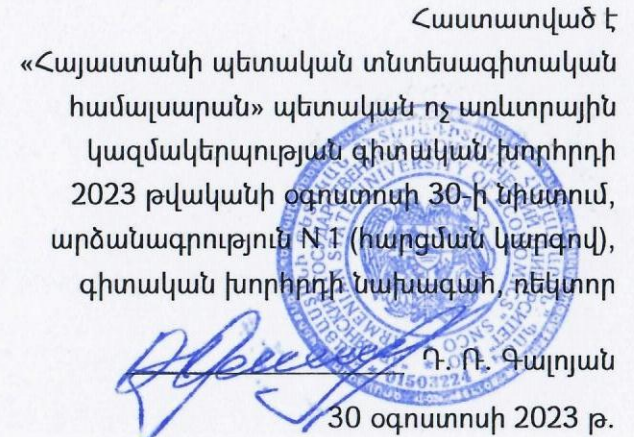 Հաստատված է
«Հայաստանի պետական տնտեսագիտական
համալսարան» պետական ոչ առևտրային
կազմակերպության գիտական խորհրդի
2023 թվականի օգոստոսի 30-ի նիստում,
արձանագրություն N 1 (հարցման կարգով),
գիտական խորհրդի նախագահ, ռեկտոր
Դ. Ռ. Գալոյան
30 օգոստոսի 2023 թ.
01503224